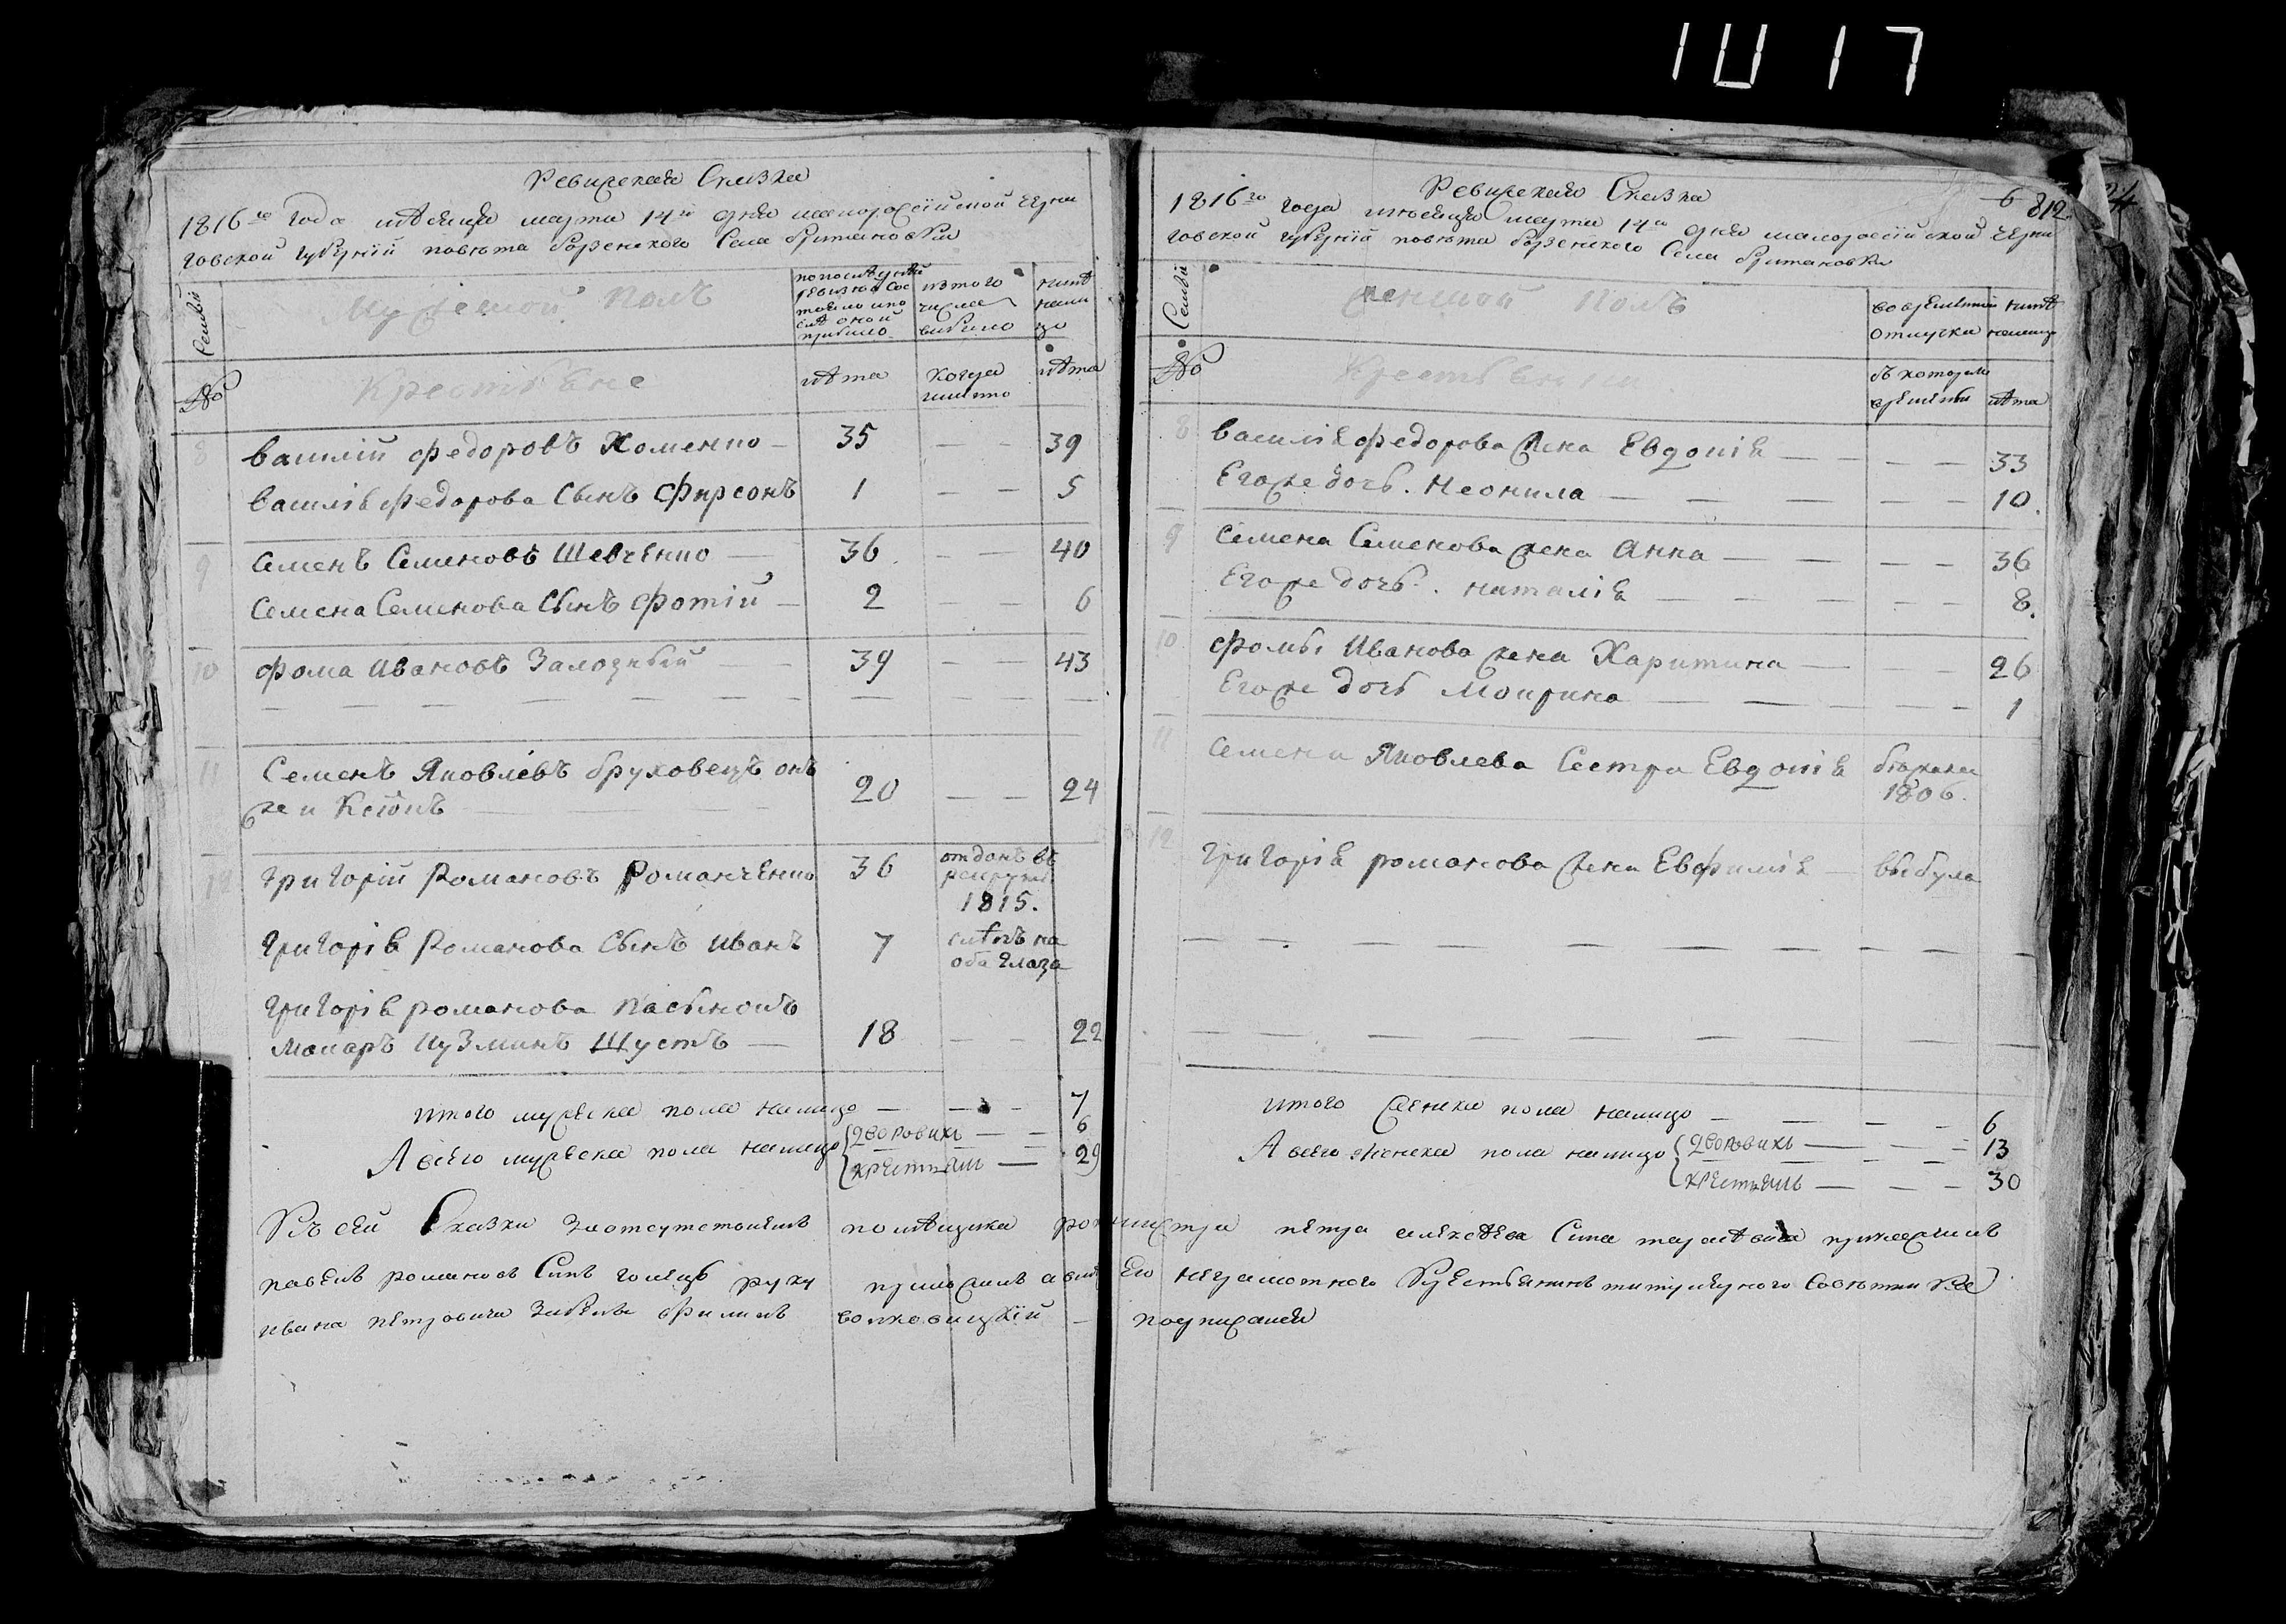 1017
Ревижская Сказка
1816го года месяца марта 14го дня малоросїйской Черни
говской губернїи повета борзенского Села британовки
Семьи
Мужеской полъ
по последней
ревизіи сос
тояло и по
сле оной
прибило
изтого
числа
вибило
ныне
нали
цо
№
Крестьяне
лѣта
когда
именно
лѣта
8
Василий Федоровъ Хоменко — 35 — — 39
Василія Федорова Сынъ Фирсонъ 1 — — 5
9
Семенъ Семеновъ Шевченко 36 — — 40
Семена Семенова Сынъ Фотій — 2 — — 6
10
Фома Ивановъ Залозный — 39 — — 43
11
Семенъ Яковлевъ бруховецъ онъ
же и 20 — — 24
12
Григорій Романовъ Романченко 36 отданъ въ
рекруты
1815.
Григорія Романова Сынъ Иванъ 7 слѣпъ на
оба глаза
Григорія романова пасынокъ
Макаръ Кузминъ Шустъ — 18 — — 22
итого мужеска пола налицо — — - 7
А всего мужеска пола налицо дворовихъ — — 6
крестьянъ — 29
6 812
24
Ревижская Сказка
1816го года месяца марта 14го дня малоросїйской Черни
говской губернїи повета борзенского Села британовки
Семьи
женской полъ
во временной
отлучки
ныне
налицо
№
Крестьянки
съ которого
времени
лѣта
8
Василія Федорова жена Евдокія — — — — 33
Его же дочь. Неонила — — — — — 10.
9
Семена Семенова жена Анна — — — — 36
Его же дочь. наталія — — — — — 8.
10
Фомы Иванова жена Харитина — — 26
Его же дочь Мокрина — — — — — 1
11
Семена Яковлева Сестра Евдокія бежала
1806.
12
Григорія романова жена Евфимія — выбула
итого женска пола налицо — — - - 6
А всего женска пола налицо дворовихъ — — - 13
крестьянъ — — — 30
Къ сей Сказки заотсутствіемъ помѣщика ротмистра петра алексѣева Сина
павелъ романовъ Синъ голецъ руку приложилъ а вместо его неграмотного титулярного Советника
ивана петровича Забелы Филипъ волковицкїй — подписался